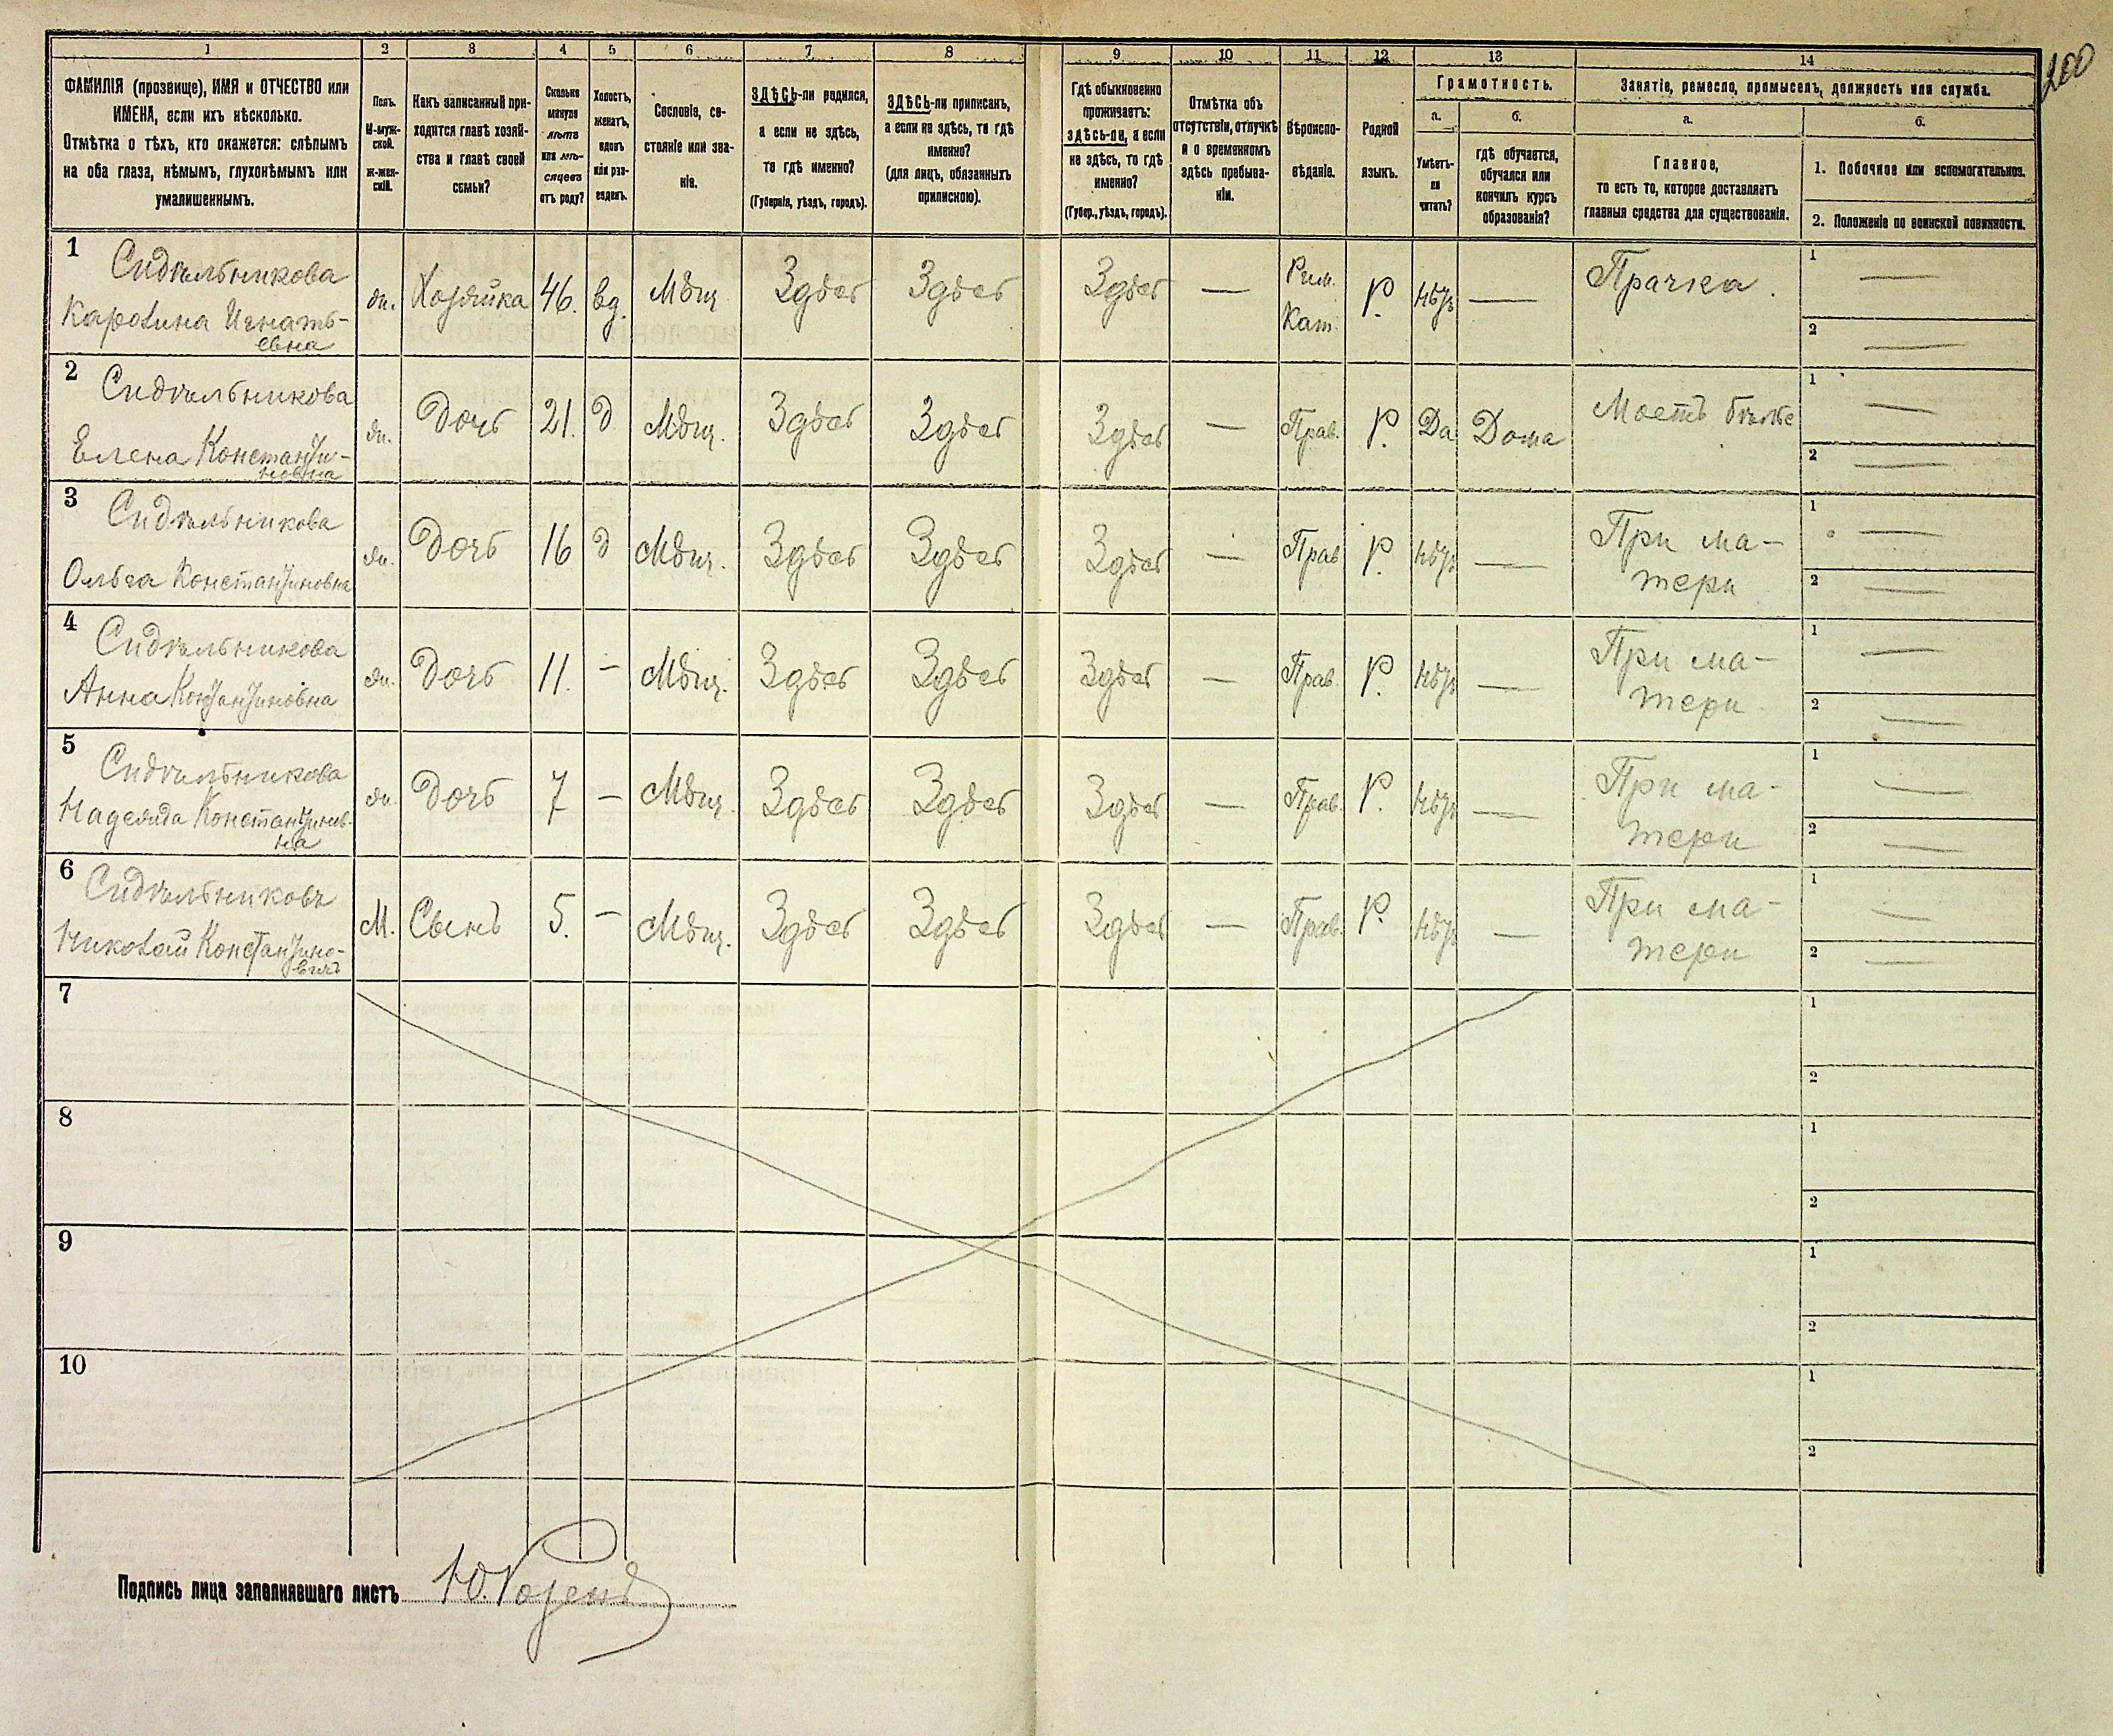 200
1
2
3
4
5
6
7
8
9
10
11
12
13
14
ФАМИЛІЯ (прозвище), ИМЯ и ОТЧЕСТВО или
ИМЕНА, если ихъ нѣсколько.
Отмѣтка о тѣхъ, кто окажется: слѣпымъ
на оба глаза, нѣмымъ, глухонѣмымъ или
умалишеннымъ.
Полъ.
М-муж-
ской.
ж-жен-
скій.
Какъ записанный при-
ходится главѣ хозяй-
ства и главѣ своей
семьи?
Сколько
минуло
лѣтъ
или мѣ-
сяцевъ
отъ роду?
Холостъ,
женатъ,
вдовъ
или раз-
веденъ.
Сословіе, со-
стояніе или зва-
ніе.
ЗДѢСЬ-ли родился,
а если не здѣсь,
то гдѣ именно?
(Губернія, уѣздъ, городъ).
ЗДѢСЬ-ли приписанъ,
а если не здѣсь, то гдѣ
именно?
(для лицъ, обязанныхъ
припискою).
Гдѣ обыкновенно
проживаетъ:
здѣсь-ли, а если
не здѣсь, то гдѣ
именно?
(Губер., уѣздъ, городъ).
Отмѣтка объ
отсутствіи, отлучкѣ
и о временномъ
здѣсь пребыва-
ніи.
Вѣроиспо-
вѣданіе.
Родной
языкъ.
Грамотность.
а.
Умѣетъ-
ли
читать?
б.
гдѣ обучается,
обучался или
кончилъ курсъ
образованія?
Занятіе, ремесло, промыселъ, должность или служба.
а.
Главное,
то есть то, которое доставляетъ
главныя средства для существованія.
б.
1. Побочное или вспомогательное.
2. Положеніе по воинской повинности.
1
Сидѣльникова
Каролина Игнать-
евна
ж. Хозяйка 46. вд. Мѣщ. Здѣсь Здѣсь Здѣсь — Рим. Кат. Р. Нѣтъ — Прачка.
1 —
2 —
2
Сидѣльникова
Елена Константи-
новна
ж. Дочь 21. д Мѣщ. Здѣсь Здѣсь Здѣсь — Прав. Р. Да Дома Моетъ бѣлье
1 —
2 —
3
Сидѣльникова
Ольга Константиновна
ж. Дочь 16 д Мѣщ. Здѣсь Здѣсь Здѣсь — Прав Р. Нѣтъ — При ма-
тери
1 —
2 —
4
Сидѣльникова
Анна Константиновна
ж. Дочь 11. — Мѣщ. Здѣсь Здѣсь Здѣсь — Прав. Р. Нѣтъ — При ма-
тери
1 —
2 —
5
Сидѣльникова
Надежда Константинов-
на
ж. Дочь 7 — Мѣщ. Здѣсь Здѣсь Здѣсь — Прав. Р. Нѣтъ — При ма-
тери
1 —
2 —
6
Сидѣльниковъ
Николай Константино-
вичъ
М. Сынъ 5. — Мѣщ. Здѣсь Здѣсь Здѣсь — Прав. Р. Нѣтъ — При ма-
тери
1 —
2 —
7
1
2
8
1
2
9
1
2
10
1
2
Подпись лица заполнявшаго листъ Ю. Розенъ